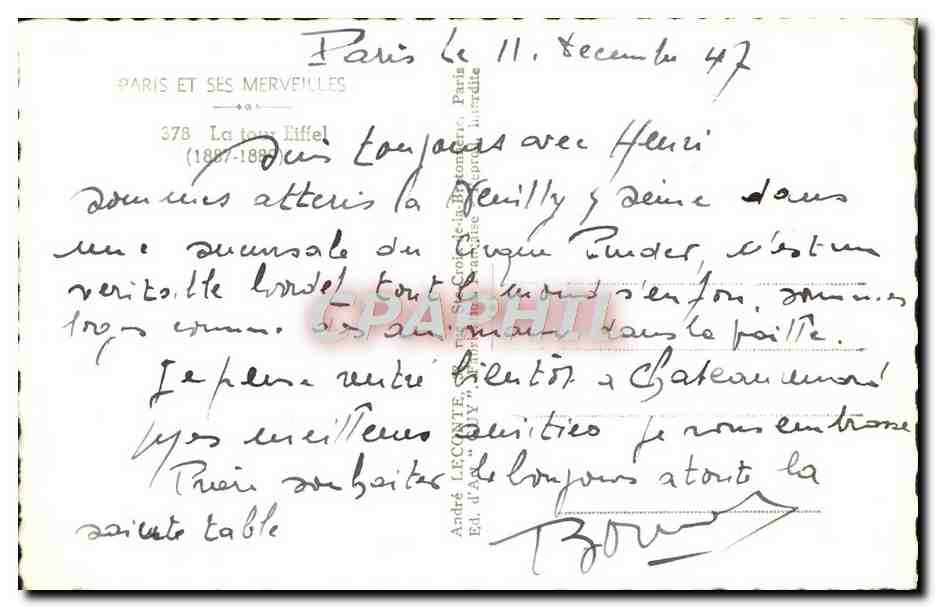 Paris le 11. decembre 47
PARIS ET SES MERVEILLES
378 La tour Eiffel
(1887-1889)
suis toujours avec Henri
sommes atteris la Neuilly s seine dans
une sucursale du Cirque Pinder, c'est un
veritable bordel tout le monde s'en fou, sommes
loges comme des animaux dans la paille.
Je pense rentré bientôt a
mes meilleures amities je vous embrasse
Prière souhaiter le bonjours a toute la
sainte table
André LECONTE, Ste-Croix-de-la-Bretonnerie, Paris
Ed. d'Art "GUY" Française Reprod. interdite
CPAPHIL